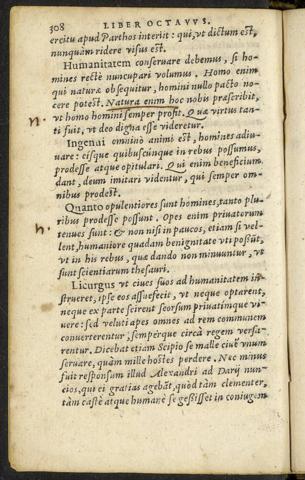 308 LIBER OCTAVVS.
ercitu apud Parthos interijt: qui, vt dictum est,
nunquàm ridere visus est.
Humanitatem conseruare debemus, si ho-
mines rectè nuncupari volumus. Homo enim
qui naturæ obsequitur, homini nullo pacto no-
cere potest. Natura enim hoc nobis præscribit,
n. vt homo homini semper profit. Quæ virtus tan-
ti fuit, vt deo digna esse videretur.
Ingenui omninò animi est, homines adiu-
uare: eisque quibuscunque in rebus possumus,
prodesse atque opitulari. Qui enim beneficium
dant, deum imitari videntur, qui semper om-
nibus prodest.
Quanto opulentiores sunt homines, tanto plu-
ribus prodesse possunt. Opes enim priuatorum
n. tenues sunt: & non nisi in paucos, etiam si vel-
lent, humaniore quadam benignitate vti possūt,
vt in his rebus, quæ dando non minuuntur, vt
sunt scientiarum thesauri.
Licurgus vt ciues suos ad humanitatem in-
strueret, ipse eos assuefecit, vt neque optarent,
neque ex parte scirent seorsum priuatimque vi-
uere: sed veluti apes omnes ad rem communem
conuerterentur, sempérque circà regem versa-
rentur. Dicebat etiam Scipio se malle ciuē vnum
seruare, quàm mille hostes perdere. Nec minus
fuit responsum illud Alexandri ad Darij nun-
cios, qui ei gratias agebāt, quòd tàm clementer,
tàm castè atque humanè se gessisset in coniugem